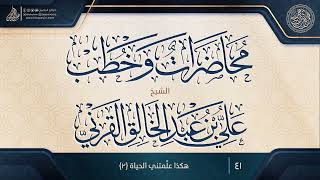 محاضرات وخطب
الشيخ
علي بن عبد الخالق القرني
٤١
هكذا علمتني الحياة {٢}